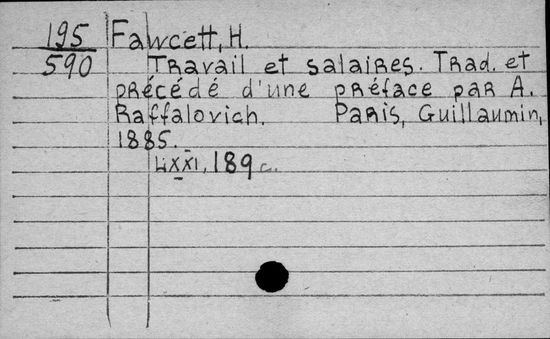 195 Fawcett, H.
590 Travail et salaires. Trad. et
précédé d'une préface par A.
Raffalovich. Paris, Guillaumin,
1885.
LXXI, 189 c.